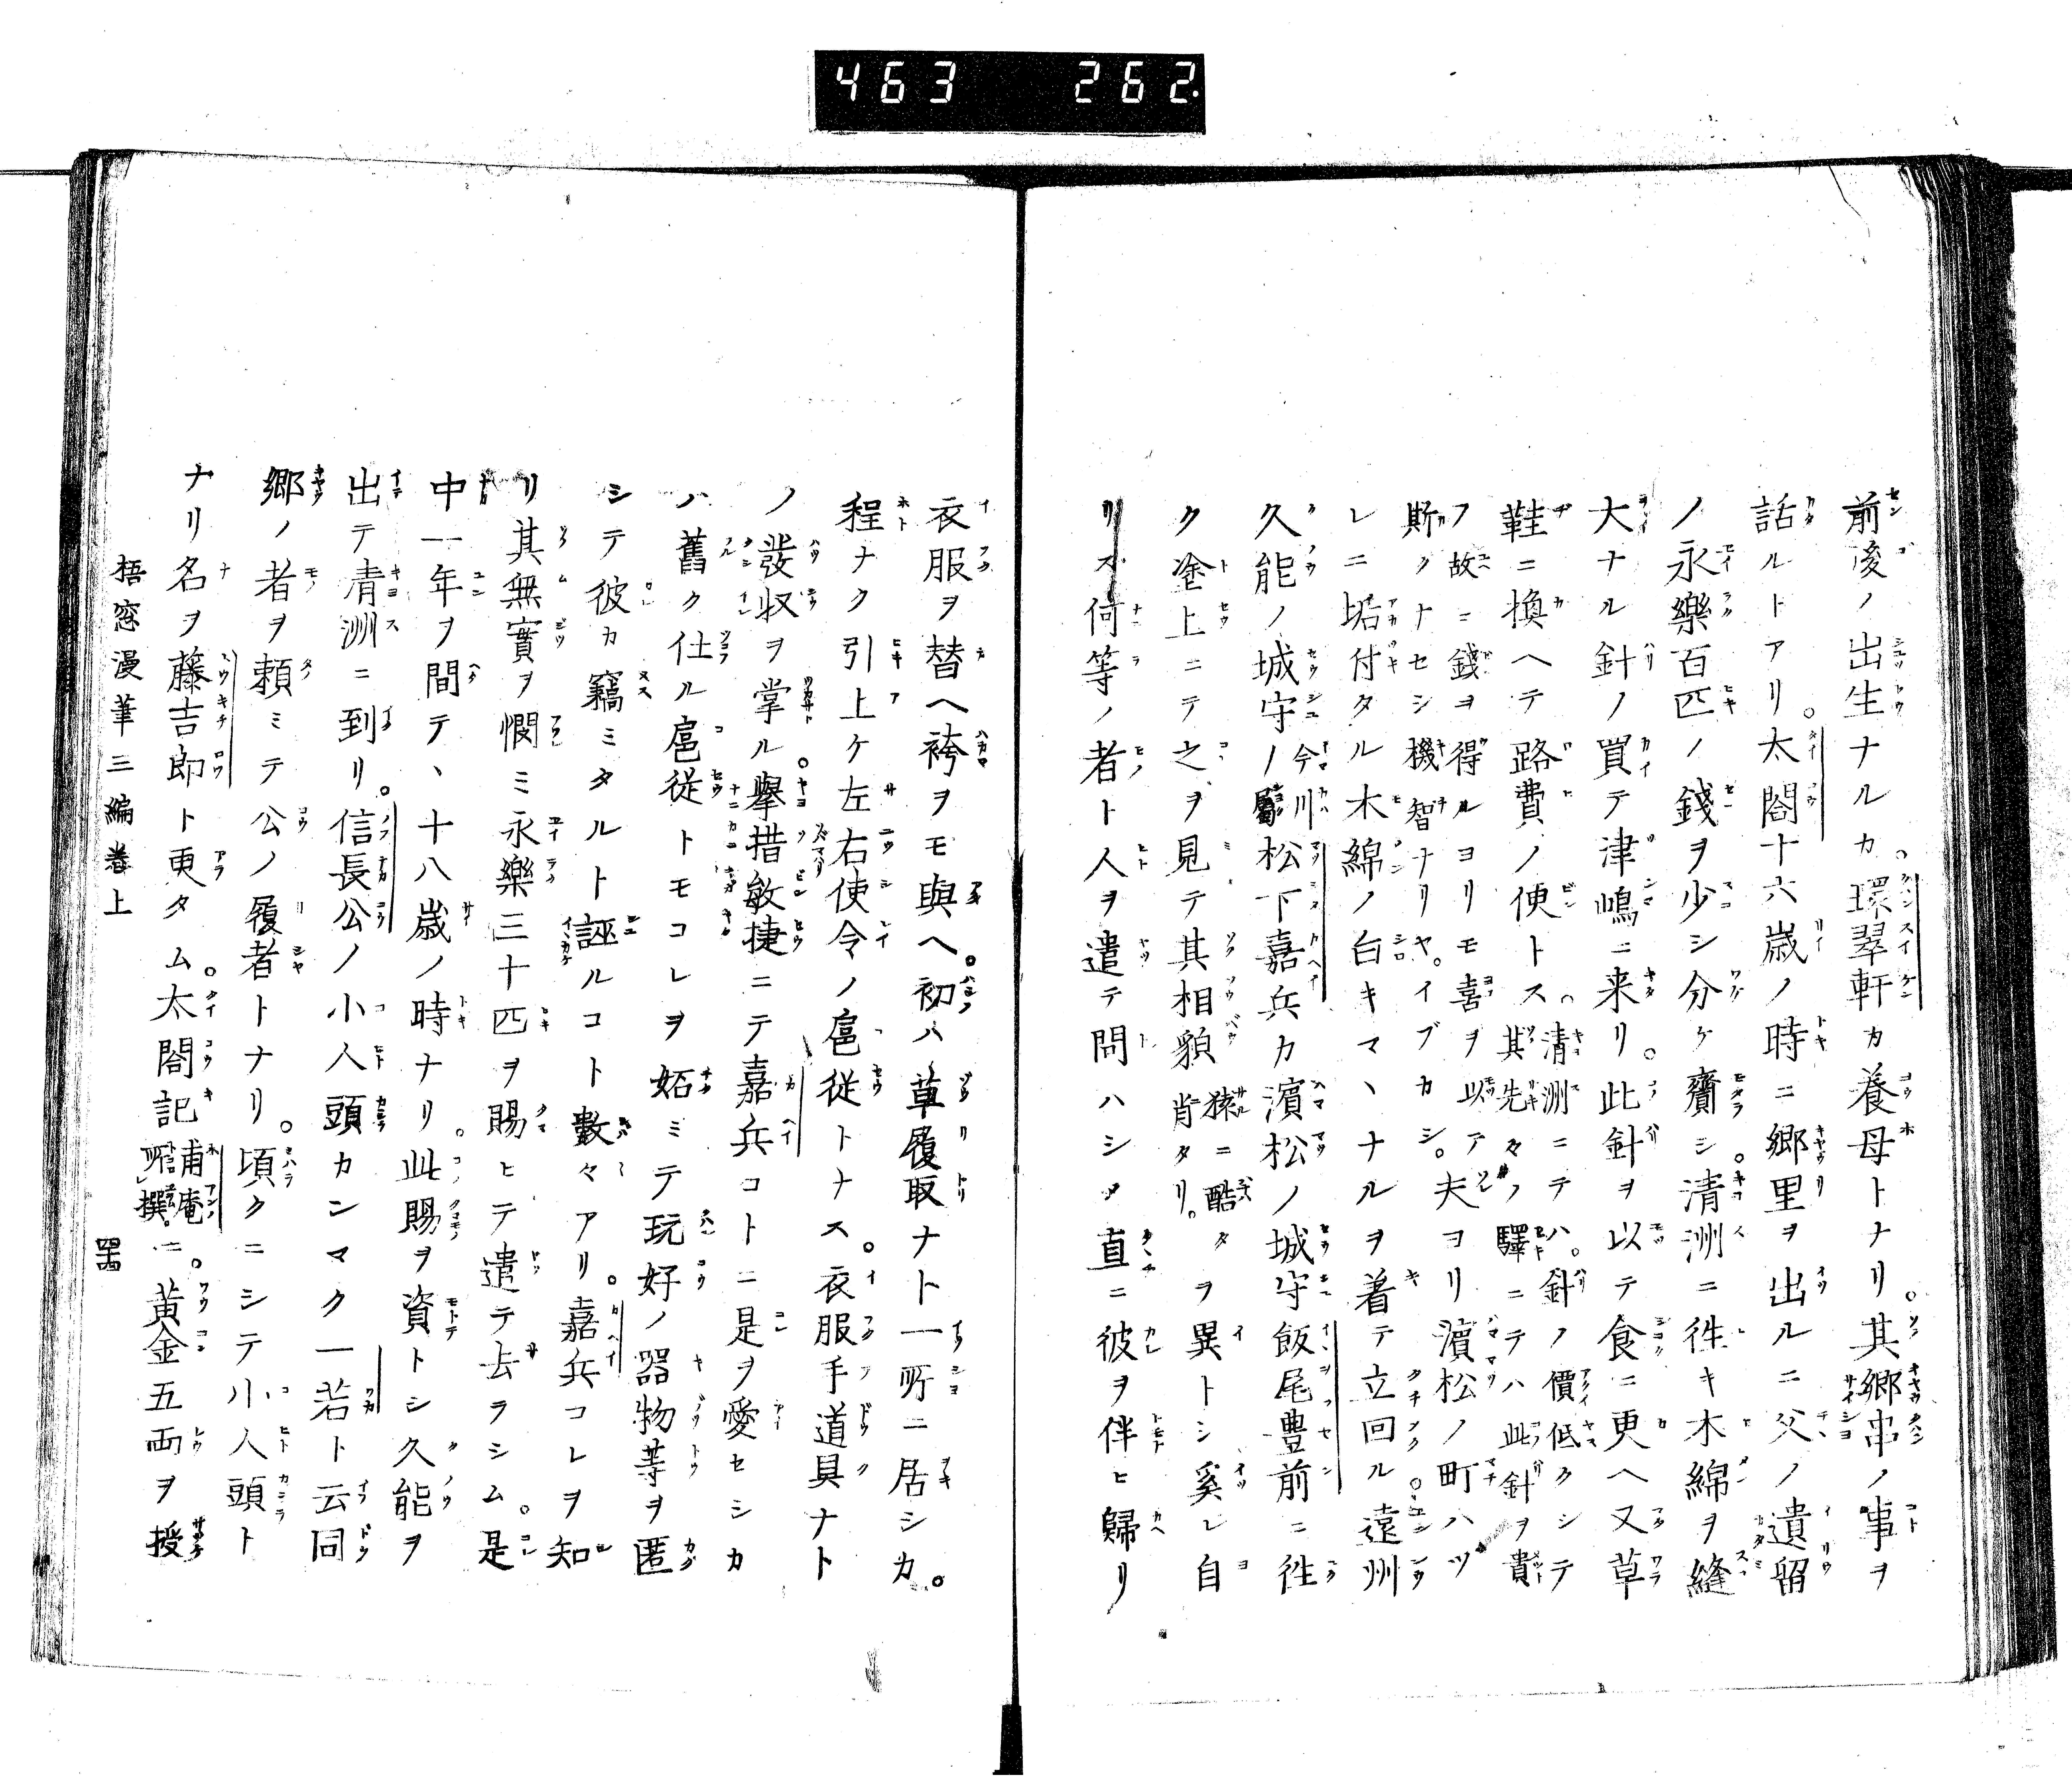 463 262.
前後ノ出生ナルカ。環翠軒カ養母トナリ。其郷串ノ事ヲ
話ルトアリ。太閤十六歳ノ時ニ郷里ヲ出ルニ父ノ遺留
ノ永樂百匹ノ錢ヲ少シ分ケ齎シ。清洲ニ徃キ木綿ヲ縫
大ナル針ノ買テ津嶋ニ来リ。此針ヲ以テ食ニ更ヘ又草
鞋ニ換ヘテ路費ノ便トス。清洲ニテハ。針ノ價低クシテ
其先々ノ驛ニテハ此針ヲ貴
フ故ニ錢ヲ得ルヨリモ喜ヲ以アツ
斯クナセシ機智ナリヤ。イブカシ。夫ヨリ濱松ノ町ハツ
レニ垢付タル木綿ノ白キマヽナルヲ着テ立回ル。遠州
久能ノ城守ノ今川屬松下嘉兵カ濱松ノ城守飯尾豊前ニ徃
ク塗上ニテ之ヲ見テ其相貌猿ニ酷タ肖タリ。ヲ異トシ奚レ自
リス何等ノ者ト人ヲ遣テ問ハシメ直ニ彼ヲ伴ヒ歸リ
衣服ヲ替ヘ袴ヲモ與ヘ。初ハ草履取ナト一所ニ居シカ。
程ナク引上ケ左右使令ノ扈従トナス。衣服手道具ナト
ノ發収ヲ掌ル。擧措敏捷ニテ嘉兵コトニ是ヲ愛セシカ
ハ舊ク仕ル扈従トモコレヲ妬ミテ玩好ノ器物等ヲ匿
シテ彼カ竊ミタルト誣ルコト數々アリ。嘉兵コレヲ知
リ其無實ヲ憫ミ永樂三十匹ヲ賜ヒテ遣テ去ラシム。是
中一年ヲ間テ、十八歳ノ時ナリ。此賜ヲ資トシ久能ヲ
出テ清洲ニ到リ。信長公ノ小人頭カンマク一若ト云同
郷ノ者ヲ頼ミテ公ノ履者トナリ。頃クニシテ小人頭ト
ナリ名ヲ藤吉郎ト更タム。太閤記甫庵所撰。ニ。黄金五両ヲ授
梧窓漫筆三編巻上